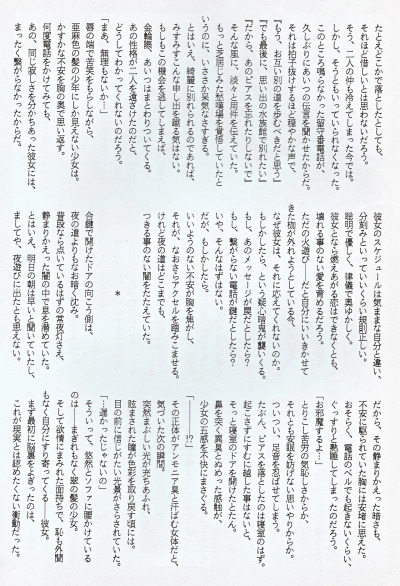 たとえどこかで落としたとしても、
それほど惜しいとは思わないだろう。
そう、二人の仲も冷えてしまった今では。
しかし、そうともいっていられなくなった。
このところ鳴らなかった留守番電話が、
久しぶりにあいつの伝言を聞かせたからだ。
それは拍子抜けするほど穏やかな声で、
『もう、お互い別の道を歩むべきだと思う』
『でも最後に、思い出の水族館で別れたい』
『だから、あのピアスを忘れたりしないで』
そんな風に、淡々と用件を伝えていた。
もっと芝居じみた愁嘆場を覚悟していたと
いうのに、いささか呆気なさすぎる。
とはいえ、綺麗に別れられるのであれば、
みすみすこんな申し出を蹴る気はない。
もしもこの機会を逃してしまえば、
金輪際、あいつはまとわりついてくる。
あの性格が二人を遠ざけたのだと、
どうしてわかってくれないのだろう。
「まあ、無理もないか…」
唇の端で苦笑をもらしながら、
亜麻色の髪の少年にしか見えない少女は。
かすかな不安を胸の奥で思い返す。
何度電話をかけてみても、
あの、同じ寂しさを分かちあった彼女には、
まったく繋がらなかったからだ。
彼女のスケジュールは気ままな自分と違い、
分刻みといっていいくらい規則正しい。
聡明で優しく、律儀で奥ゆかしく。
彼女となら燃えあがる恋はできなくとも、
壊れる事のない愛を育めるだろう。
ただの火遊び――だと自分にいいきかせて
きた枷が外れようとしている今、
なぜ彼女は、それに応えてくれないのか。
もしかしたら、という疑心暗鬼が襲いくる。
もし、あのメッセージが罠だとしたら？
もし、繋がらない電話が鍵だとしたら？
いや、そんなはずはない。
だが、もしかしたら。
いいようのない不安が胸を焦がし、
それが、なおさらアクセルを踏みこませる。
けれど夜の道はどこまでも、
つきる事のない闇をたたえていた。
＊
合鍵で開けたドアの向こう側は、
夜の道よりもなお暗く沈み。
普段なら点いているはずの常夜灯さえ、
静まりかえった闇の中で息を潜めていた。
とはいえ、明日の朝は早いと聞いていたし、
ましてや、夜遊びに出たとも思えない。
だから、その静まりかえった暗さも、
不安に駆られていた胸には安堵に思えた。
おそらく、電話のベルでも起きないくらい、
ぐっすりと熟睡してしまったのだろう。
「お邪魔するよ…」
とりこし苦労の気恥しさからか、
それとも安眠を妨げない思いやりからか。
ついつい、足音を忍ばせてしまう。
たぶん、ピアスを落としたのは寝室のはず。
起こさずにすむに越した事はないと、
そっと寝室のドアを開けたとたん。
鼻を突く異臭とぬめった感触が、
少女の五感を不快にまさぐる。
「――!?」
その正体がアンモニア臭と汗ばむ女体だと、
気づいた次の瞬間。
突然まぶしい光が満ちあふれ、
眩まされた瞳が色彩を取り戻す頃には。
目の前に信じがたい光景がさらされていた。
「…遅かったじゃないの」
そういって、悠然とソファに腰かけている
のは――まぎれもなく翠の髪の少女。
そして欲情にまみれた面持ちで、恥も外聞
もなく自分にすり寄ってくる――彼女。
まず最初に脳裏をよぎったのは、
これが現実とは認めたくない衝動だった。